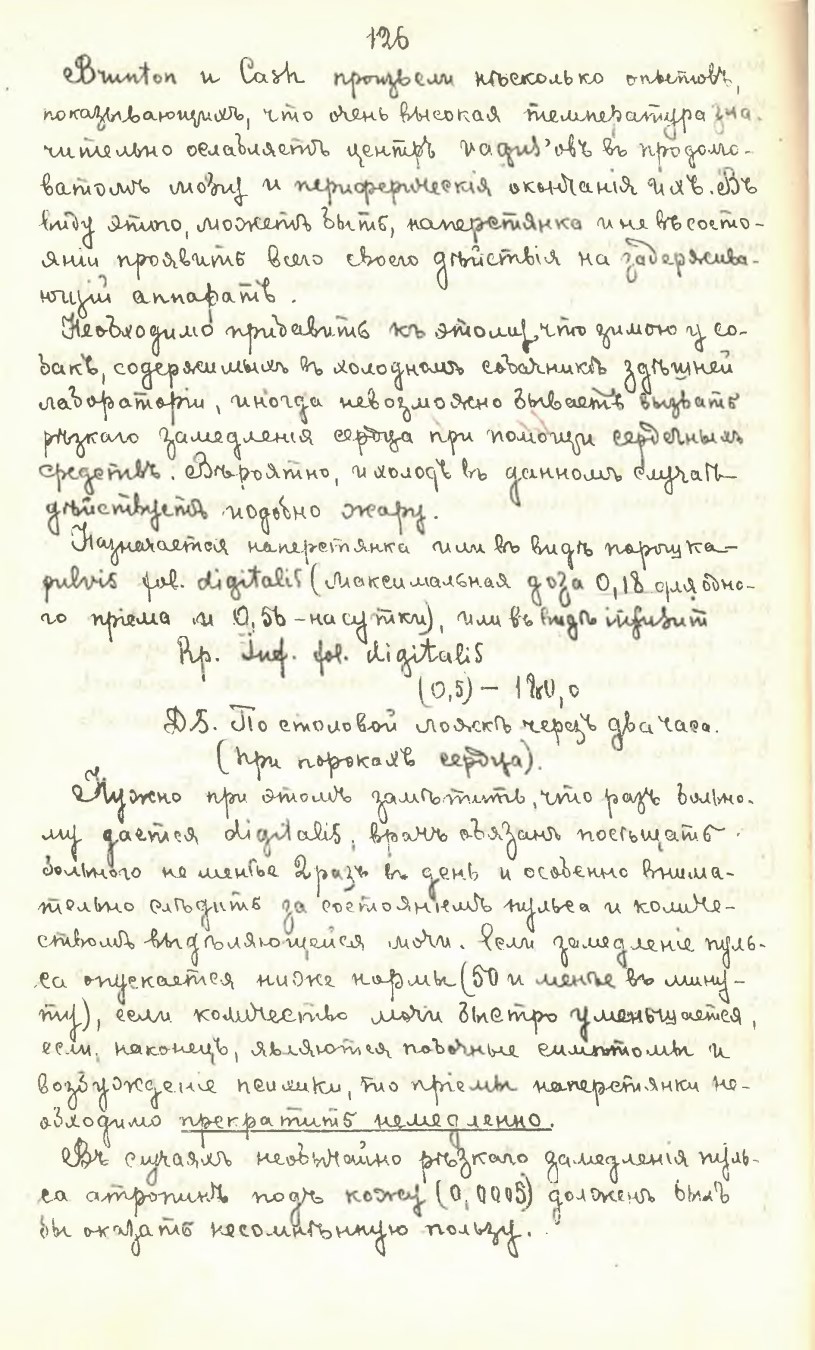 126
Brunton и Cash произвели нѣсколько опытовъ,
показывающихъ, что очень высокая температура зна-
чительно ослабляетъ центръ vagus'овъ въ продолго-
ватомъ мозгу и периферическія окончанія ихъ. Въ
виду этого, можетъ быть, наперстянка и не въ состо-
яніи проявить всего своего дѣйствія на задержива-
ющій аппаратъ.
Необходимо прибавить къ этому, что зимою у со-
бакъ, содержимыхъ въ холодномъ собачникѣ здѣшней
лабораторіи, иногда невозможно бываетъ вызвать
рѣзкаго замедленія сердца при помощи сердечныхъ
средствъ. Вѣроятно, и холодъ въ данномъ случаѣ
дѣйствуетъ подобно жару.
Назначается наперстянка или въ видѣ порошка —
pulvis fol. digitalis (максимальная доза 0,18 для одно-
го пріема и 0,56 - на сутки), или въ видѣ infusum
Rp. Inf. fol. digitalis
(0,5) — 180,0
DS. По столовой ложкѣ черезъ два часа.
(При порокахъ сердца).
Нужно при этомъ замѣтить, что разъ больно-
му дается digitalis, врачъ обязанъ посѣщать
больного не менѣе 2 разъ въ день и особенно внима-
тельно слѣдить за состояніемъ пульса и количе-
ствомъ выдѣляющейся мочи. Если замедленіе пуль-
са опускается ниже нормы (50 и менѣе въ мину-
ту), если количество мочи быстро уменьшается,
если, наконецъ, являются побочные симптомы и
возбужденіе психики, то пріемы наперстянки не-
обходимо прекратить немедленно.
Въ случаяхъ необычайно рѣзкаго замедленія пуль-
са атропинъ подъ кожу (0,0005) долженъ былъ
бы оказать несомнѣнную пользу.